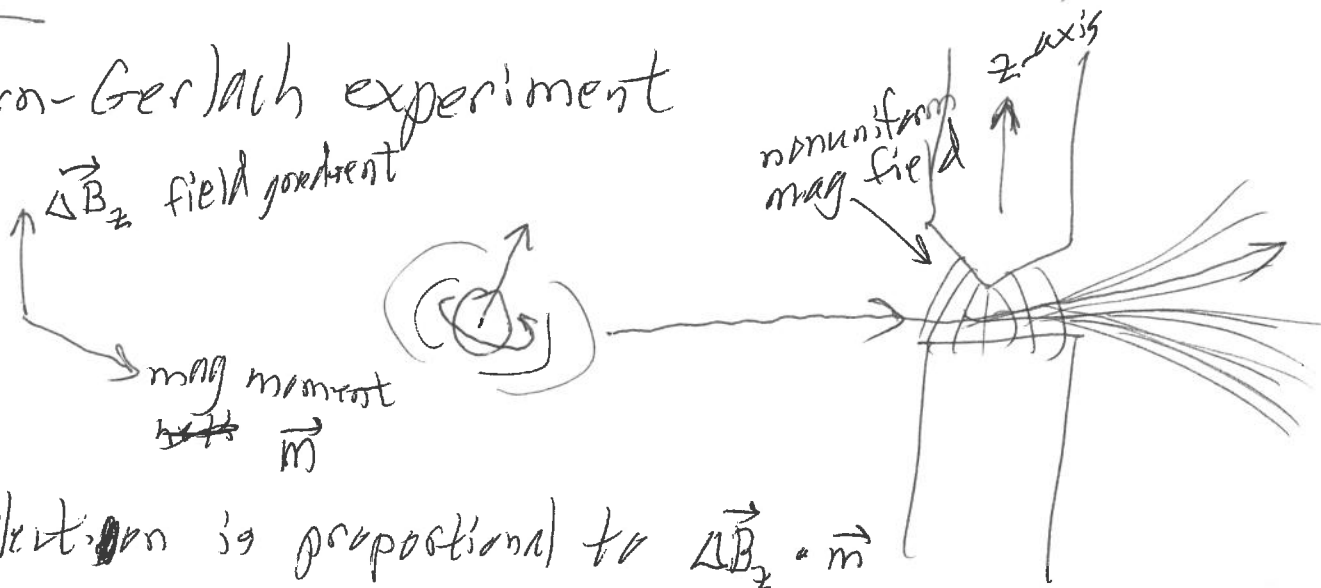 rn-Gerlach experiment
ΔB⃗_z field gradient
mag moment
m⃗
nonuniform
mag field
z-axis
lection is proportional to ΔB⃗_z · m⃗